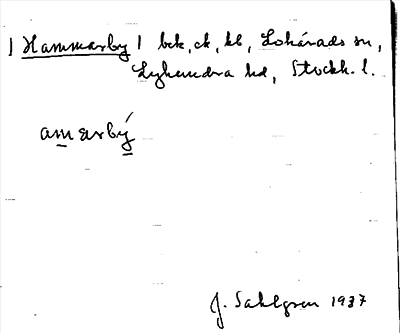 1 Hammarby 1 bck, ck, kb, Lohärads sn,
Lyhundra hd, Stockh. l.
amarbý
J. Sahlgren 1937